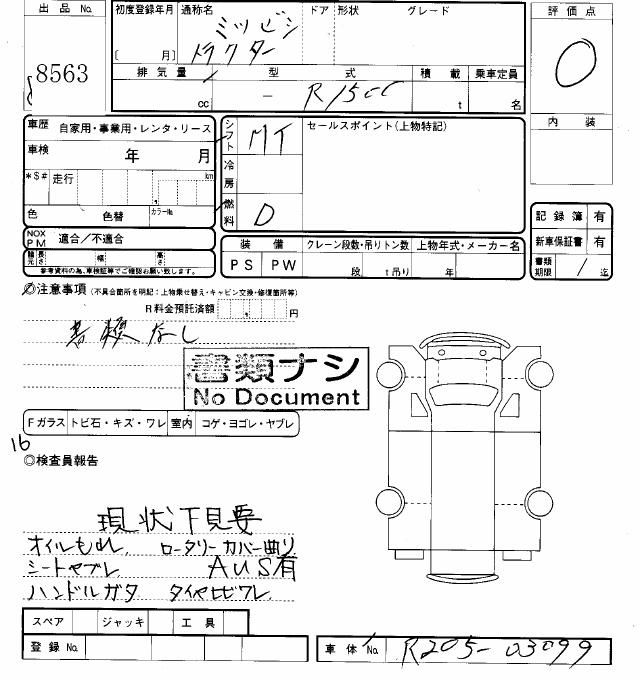 出品 No.
8563
初度登録年月
〔 月〕
通称名
ミツビシ
トラクター
ドア
形状
グレード
評価点
0
排気量
cc
型式
- R15cc
積載
t
乗車定員
名
内装
車歴 自家用・事業用・レンタ・リース
車検 年 月
*S# 走行 km
色 色替 カラーNo.
NOX PM 適合/不適合
諸元 長さ 幅 高さ
参考資料の為、車検証等でご確認お願い致します。
シフト MT
冷房
燃料 D
セールスポイント(上物特記)
装備
PS PW
クレーン段数・吊りトン数
段 t吊り
上物年式・メーカー名
年
記録簿 有
新車保証書 有
書類期限 / 迄
◎注意事項 (不具合箇所を明記:上物乗せ替え・キャビン交換・修復箇所等)
R料金預託済額 円
書類なし
書類ナシ
No Document
Fガラス トビ石・キズ・ワレ 室内 コゲ・ヨゴレ・ヤブレ
16
◎検査員報告
現状下見要
オイルもれ、 ロータリーカバー曲り
シートヤブレ、 AUS有
ハンドルガタ タイヤヒビワレ、
スペア ジャッキ 工具
登録 No.
車体 No. R205-03099